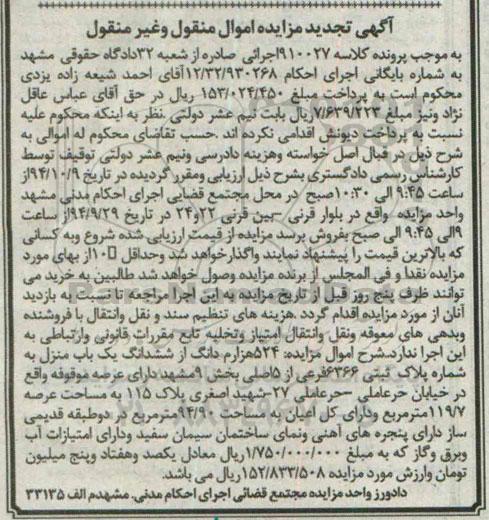 آگهی تجدید مزایده اموال منقول وغیر منقول
به موجب پرونده کلاسه ۹۱۰۰۲۷اجرائی صادره از شعبه ۳۲دادگاه حقوقی مشهد
به شماره بایگانی اجرای احکام ۱۲/۳۲/۹۳۰۲۶۸آقای احمد شیعه زاده یزدی
محکوم است به پرداخت مبلغ ۱۵۳/۰۲۴/۴۵۰ ریال در حق آقای عباس عاقل
نژاد ونیز مبلغ ۷/۶۳۹/۲۲۳ریال بابت نیم عشر دولتی .نظر به اینکه محکوم علیه
نسبت به پرداخت دیونش اقدامی نکرده اند .حسب تقاضای محکوم له اموالی به
شرح ذیل در قبال اصل خواسته وهزینه دادرسی ونیم عشر دولتی توقیف توسط
کارشناس رسمی دادگستری بشرح ذیل ارزیابی ومقرر گردیده در تاریخ ۹۴/۱۰/۹از
ساعت ۹:۴۵ الی ۱۰:۳۰صبح در محل مجتمع قضایی اجرای احکام مدنی مشهد
واحد مزایده واقع در بلوار قرنی –بین قرنی ۲۲و۲۴ در تاریخ ۹۴/۹/۲۹از ساعت
۹الی ۹:۴۵ الی صبح بفروش برسد مزایده از قیمت ارزیابی شده شروع وبه کسانی
که بالاترین قیمت را پیشنهاد نمایند واگذارخواهد شد وحداقل ۱۰از بهای مورد
مزایده نقدا و فی المجلس از برنده مزایده وصول خواهد شد طالبین به خرید می
توانند ظرف پنج روز قبل از تاریخ مزایده به این اجرا مراجعه تا نسبت به بازدید
آنان از مورد مزایده اقدام گردد .هزینه های تنظیم سند و نقل وانتقال با فروشنده
وبدهی های معوقه ونقل وانتقال امتیاز وتخلیه تابع مقررات قانونی وارتباطی به
این اجرا ندارد.شرح اموال مزایده: ۵۲۴هزارم دانگ از ششدانگ یک باب منزل به
شماره پلاک ثبتی ۶۳۶۶فرعی از ۵اصلی بخش ۹مشهد دارای عرصه موقوفه واقع
در خیابان حرعاملی –حرعاملی ۲۷-شهید اصغری پلاک ۱۱۵ به مساحت عرصه
۱۱۹/۷مترمربع ودارای کل اعیان به مساحت ۹۴/۹۰مترمربع در دوطبقه قدیمی
ساز دارای پنجره های آهنی ونمای ساختمان سیمان سفید ودارای امتیازات آب
وبرق وگاز که به مبلغ ۱/۷۵۰/۰۰۰/۰۰۰ریال معادل یکصد وهفتاد وپنج میلیون
تومان وارزش مورد مزایده ۱۵۲/۸۳۳/۵۰۸ریال می باشد.
دادورز واحد مزایده مجتمع قضائی اجرای احکام مدنی. مشهدم الف ۳۳۱۳۵